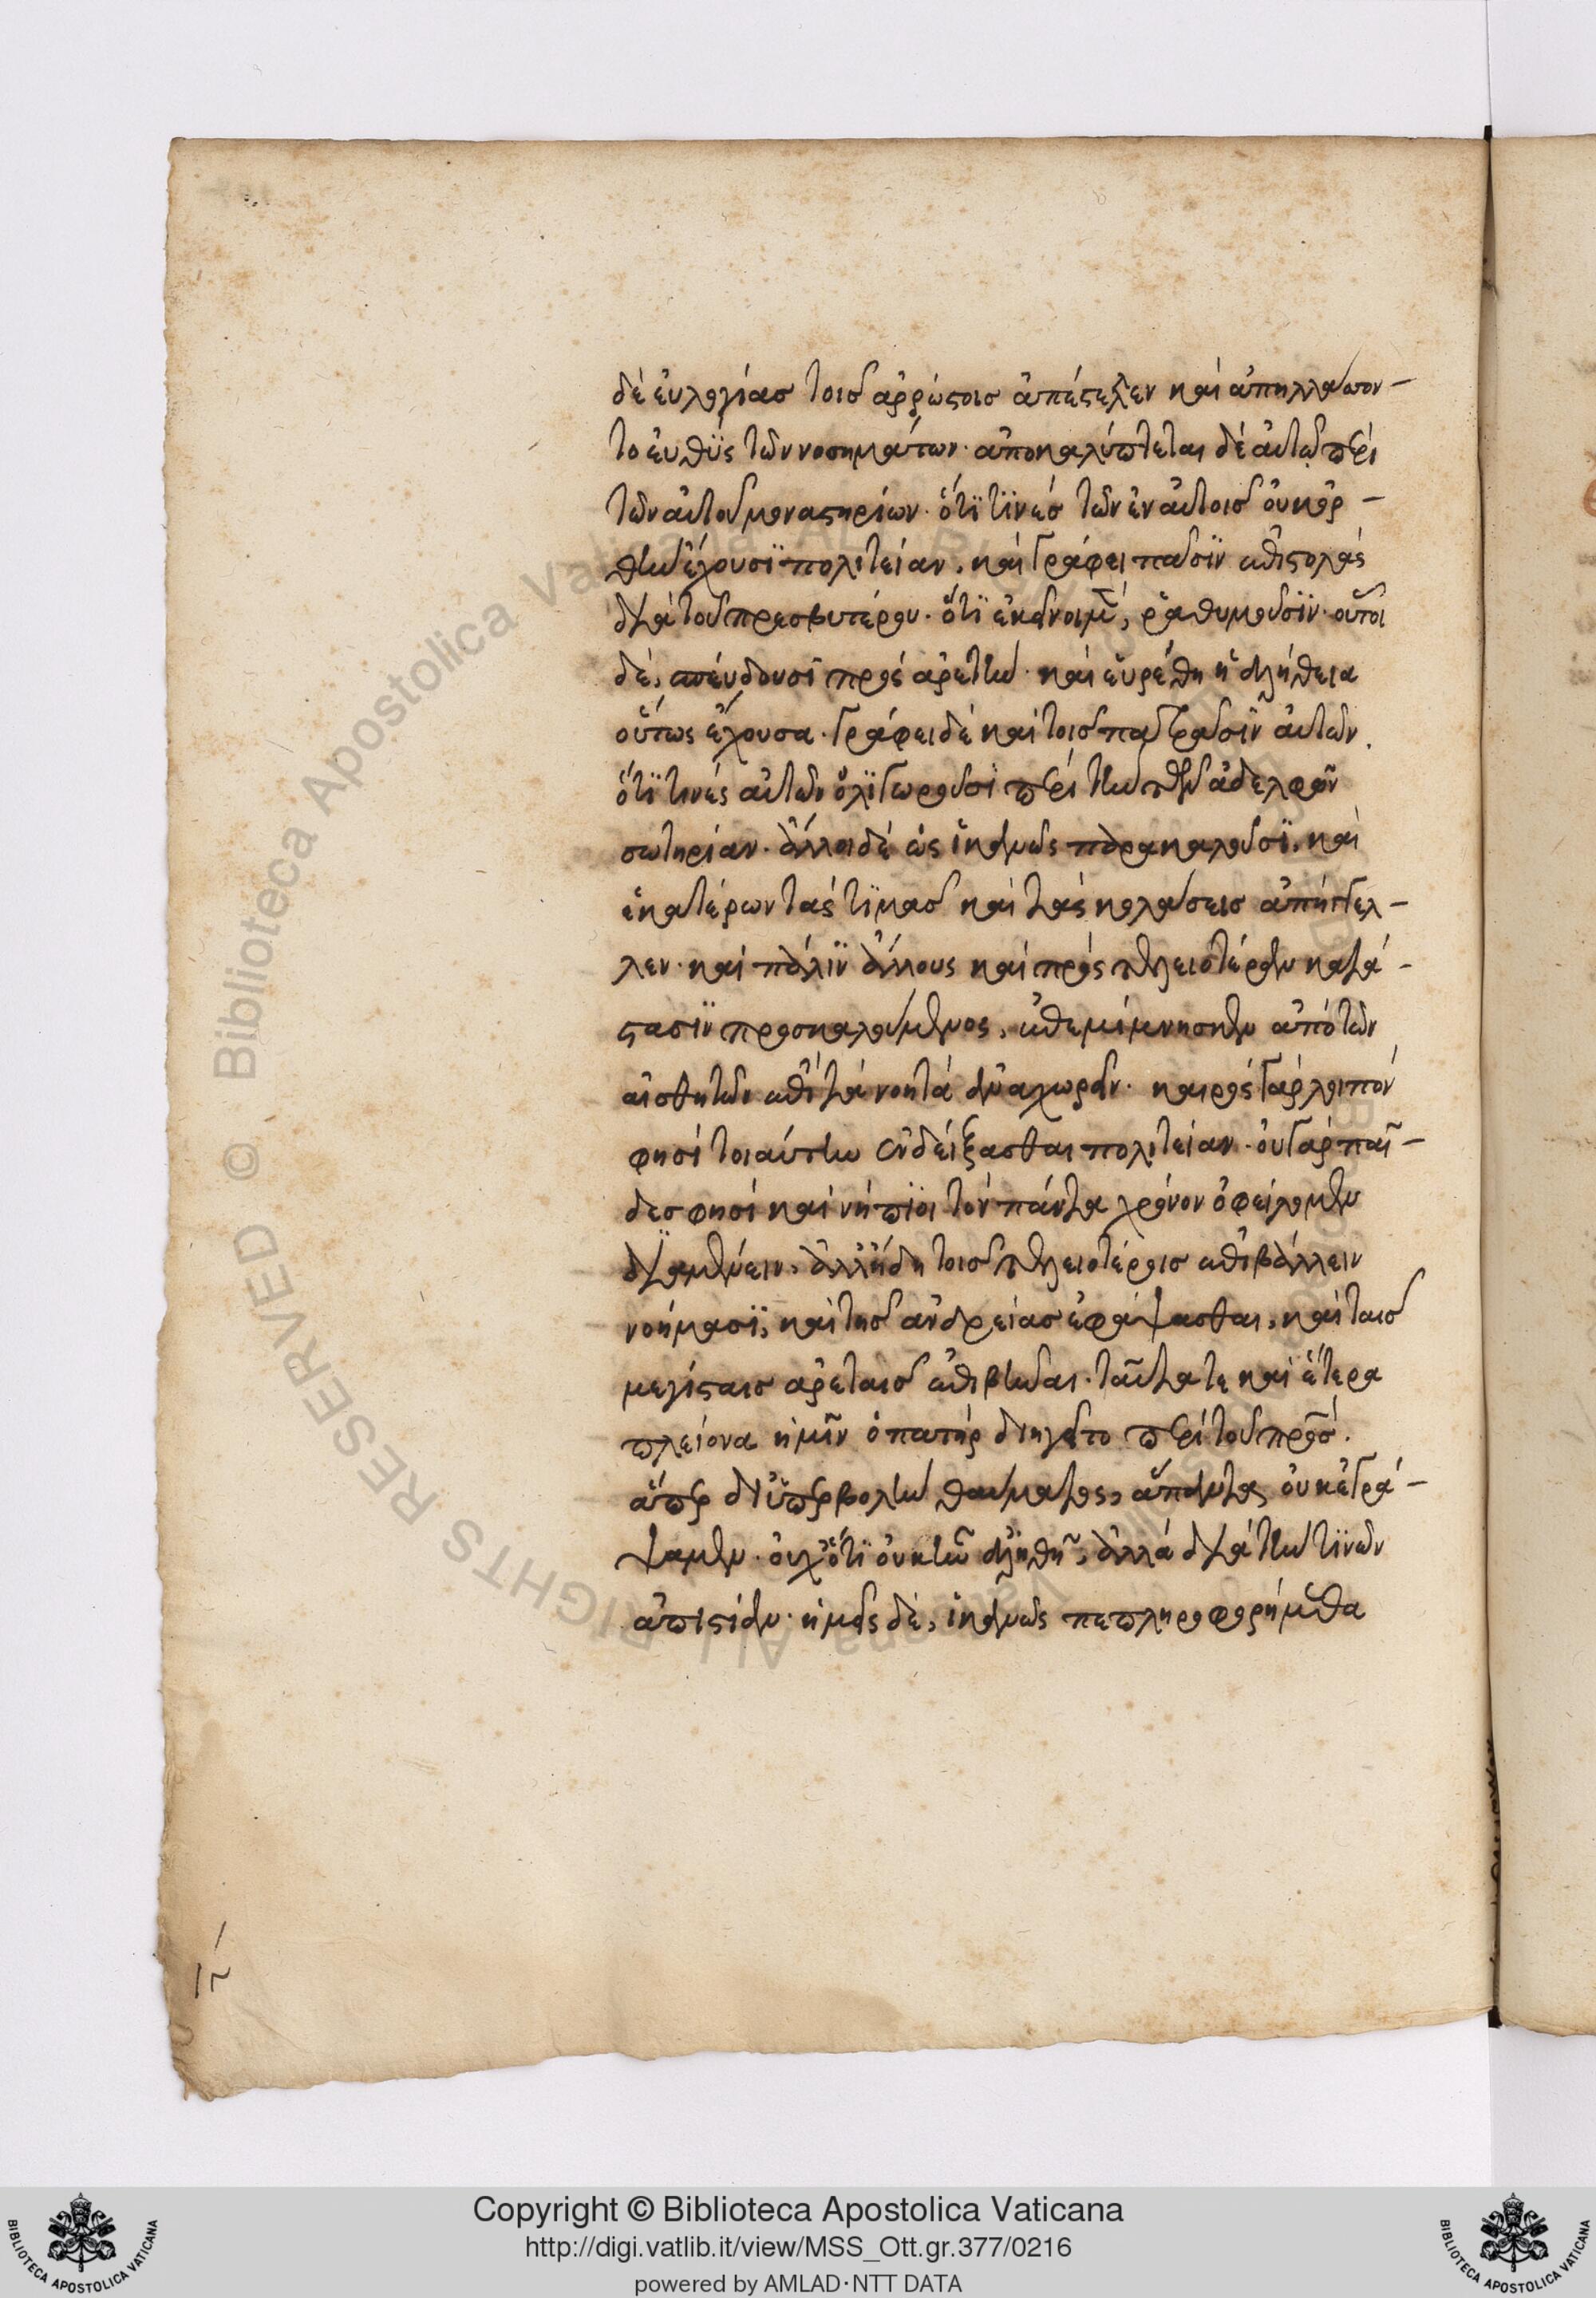 δὲ εὐλογίας τοῖς ἀρρώστοις ἀπέστελεν καὶ ἀπηλλάττον-
το εὐθὺς τῶν νοσημάτων· ἀποκαλύπτεται δὲ αὐτῷ περὶ
τῶν αὐτοῦ μοναστηρίων· ὅτϊ τϊνὲς τῶν ἐν αὐτοῖς οὐκ ὀρ-
θὴν ἔχουσϊ πολιτείαν, καὶ γράφει πᾶσϊν ἐπιστολὰς
διὰ τοῦ πρεσβυτέρου· ὅτϊ ἐκεῖνοι μὲν, ῥαθυμοῦσϊν· οὗτοι
δὲ, σπεύδουσϊ πρὸς ἀρετὴν· καὶ εὑρέθη ἡ ἀλήθεια
οὕτως ἔχουσα· γράφει δὲ καὶ τοῖς πατράσϊν αὐτῶν
ὅτϊ τινὲς αὐτῶν ὀλϊγωροῦσϊ περὶ τὴν τῶν ἀδελφῶν
σωτηρίαν· ἄλλοι δὲ ὡς ἱκανῶς παρακαλοῦσϊ, καὶ
ἑκατέρων τὰς τϊμὰς καὶ τὰς κολάσεις ἀπήγγελ-
λεν· καὶ πάλϊν ἄλλους καὶ πρὸς τελειοτέραν κατά-
στασϊν προσκαλούμενος, ἐπεμίμνησκεν ἀπὸ τῶν
αἰσθητῶν ἐπὶ τὰ νοητὰ ἀναχωρεῖν· καιρὸς γὰρ λοιπὸν
φησὶ τοιαύτην ἐνδείξασθαι πολιτείαν· οὐ γὰρ παῖ-
δες φησὶ καὶ νήπϊοι τὸν πάντα χρόνον ὀφείλομεν
διαμένειν, ἀλλ' ἤδη τοῖς τελειοτέροις ἐπιβάλλειν
νοήμασϊ, καὶ τῆς ἀνδρείας ἐφάψασθαι, καὶ ταῖς
μεγίσταις ἀρεταῖς ἐπιβῆναι· ταῦτα τε καὶ ἕτερα
πλείονα ἡμῖν ὁ πατὴρ διηγεῖτο περὶ τοῦ πρς·
ἅπερ δι' ὑπερβολὴν θαύματος, ἅπαντα οὐκ ἐγρά-
ψαμεν· οὐχ ὅτϊ οὐκ ἦν ἀληθῆ, ἀλλὰ διὰ τὴν τϊνῶν
ἀπιστίαν· ἡμεῖς δὲ, ἱκανῶς πεπληροφορήμεθα